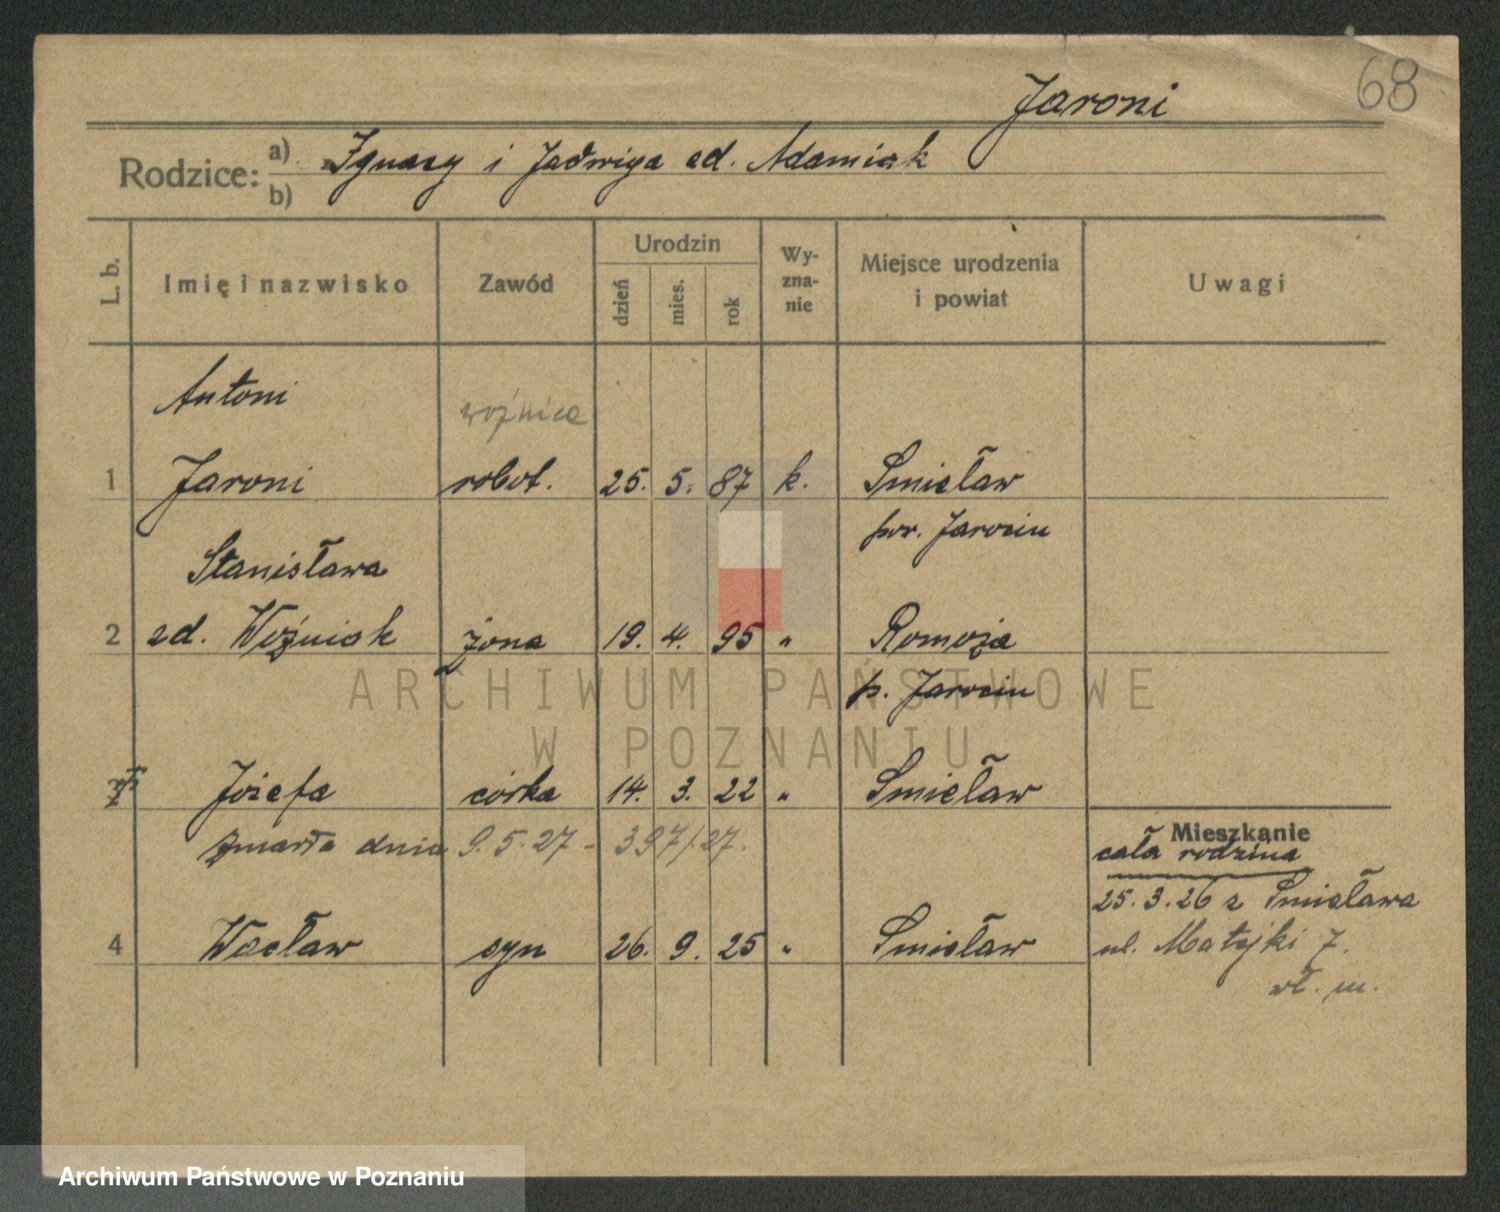 68
Jaroni
Rodzice: a) Ignacy i Jadwiga zd. Adamiak
b)
L. b. Imię i nazwisko Zawód Urodzin dzień mies. rok Wy-zna-nie Miejsce urodzenia i powiat Uwagi
Antoni woźnica
1 Jaroni robot. 25. 5. 87 k. Śmieław
pow. Jarocin
Stanisława
2 zd. Woźniak żona 19. 4. 95 "
p. Jarocin
3 Józefa córka 14. 3. 22 " Śmieław
zmarła dnia 9.5.27 - 397/27.
Mieszkanie
cała rodzina
25.3.26 z Śmieława
4 Wacław syn 26. 9. 25 " Śmieław
ul. Matejki 7.
wł. m.
ARCHIWUM PAŃSTWOWE
W POZNANIU
Archiwum Państwowe w Poznaniu